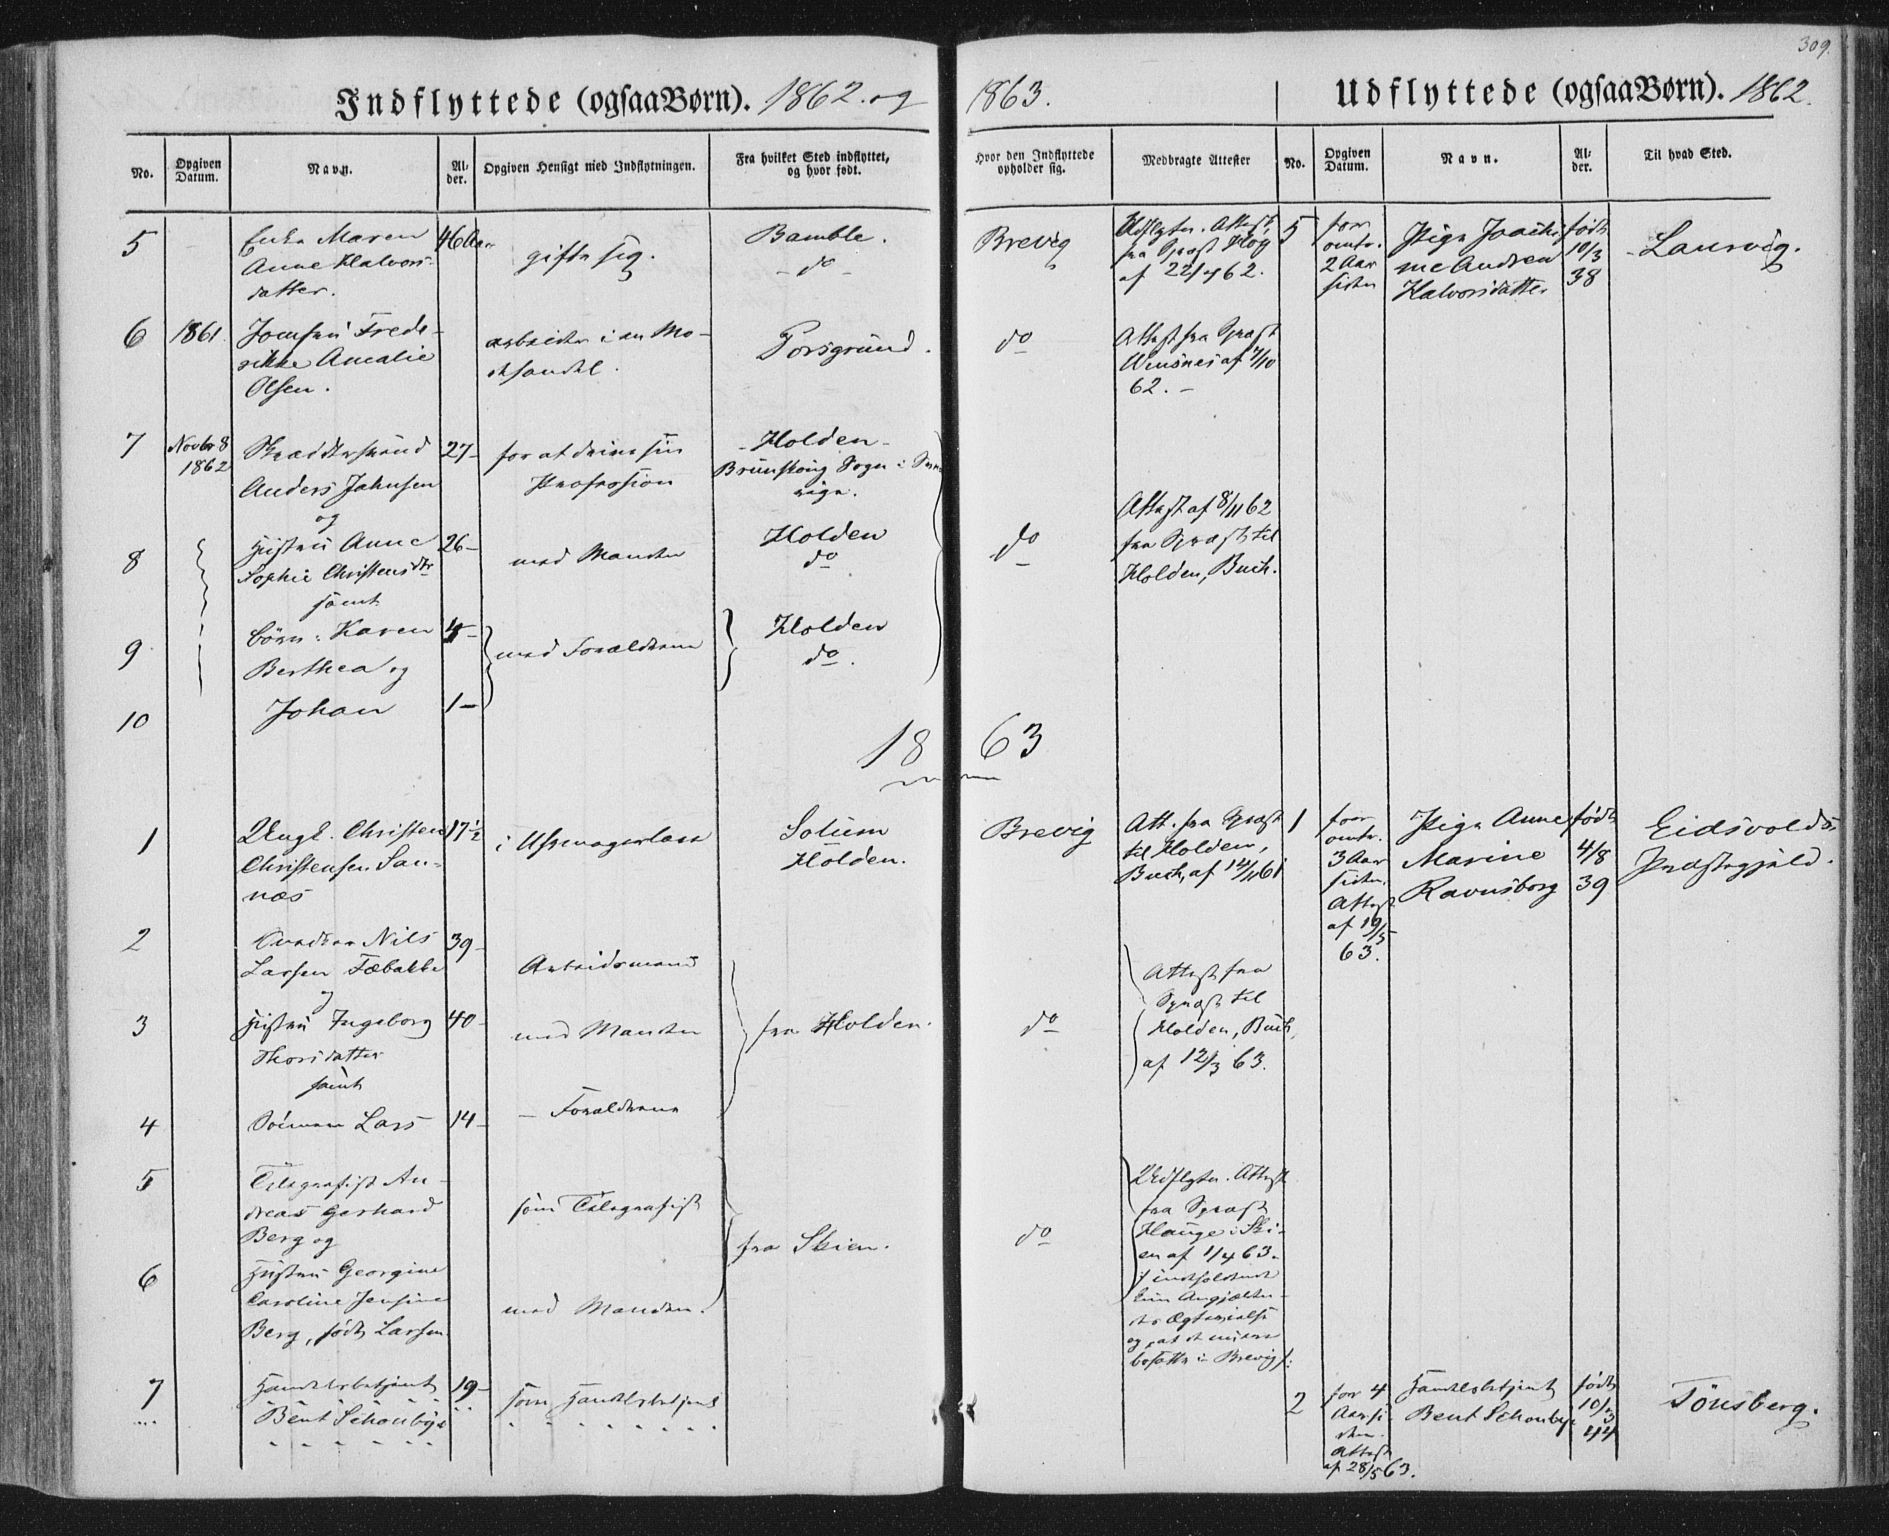 309.
Indflyttede (ogsaa Børn). 1862. og 1863.
Udflyttede (ogsaa Børn). 1862.
No. Opgiven Datum. Navn. Al-der. Opgiven Hensigt med Indflytningen. Fra hvilket Sted indflyttet, og hvor født. Hvor den Indflyttede opholder sig. Medbragte Attester No. Opgiven Datum. Navn. Al-der. Til hvad Sted.
5 Enke Maren 46 Aar gifte sig. Bamble. Brevig Udflytn. Attest
Anne Halvors- - do - fra Spræst
datter. af 22/4 62.
5 for Pige Joachi- født Laurvig.
omtr. ne Andrea 10/3
2 Aar Halvorsdatter 38
siden
6 1861. Jomfru Frede- arbeider i en Mo- Porsgrund. do Attest fra Spræst
rikke Amalie dehandel. af 7/10
Olsen. 62. -
7 Novbr 8 Skræddersvend 27- for at drive sin Holden-
1862 Anders Jahnsen Profession Brunskoug Sogn i Sve-
og rige.
8 Hustru Anne 26- med Manden Holden do Attest af 8/11 62
Sophie Christensdtr do fra Spræst til
samt Holden, Buch.
9 Børn: Karen 4- med Forældrene Holden
Berthea og do.
10 Johan 1-
1863
1 Ungk. Christen 17½ i Solum Brevig Att. fra Spræst
Christensen San- Holden. til Holden,
næs Buch, af 14/11 61
1 for Pige Anne født Eidsvolds
omtr. Marine 4/8 Præstegjæld.
3 Aar Ravnsborg 39
siden.
Attest
af 19/5
63.
2 Nils 39- Arbeidsmand
Larsen Fæbakke
og
3 Hustru Ingeborg 40- med Manden fra Holden. do Attest fra
Thorsdatter Spræst til
samt Holden, Buch,
af 12/3 63.
4 Sönnen Lars 14- - Forældrene
5 Telegrafist An- som Telegrafist fra Skien. do Udflytn. Attest
dreas Gerhard fra Spræst
Berg og Hauge i Ski-
en af 1/4 63.
6 Hustru Georgine med Manden.
Caroline Jensine
Berg, født Larsen
og, at
bosatte i Brevig
7 Handelsbetjent 19- som Handelsbetjent
Bent Schouboye
2 for 4 Handelsbetjent født Tönsberg.
Aar si- Bent Schouboye 10/3
den. 44
Attest
af 28/5 63.